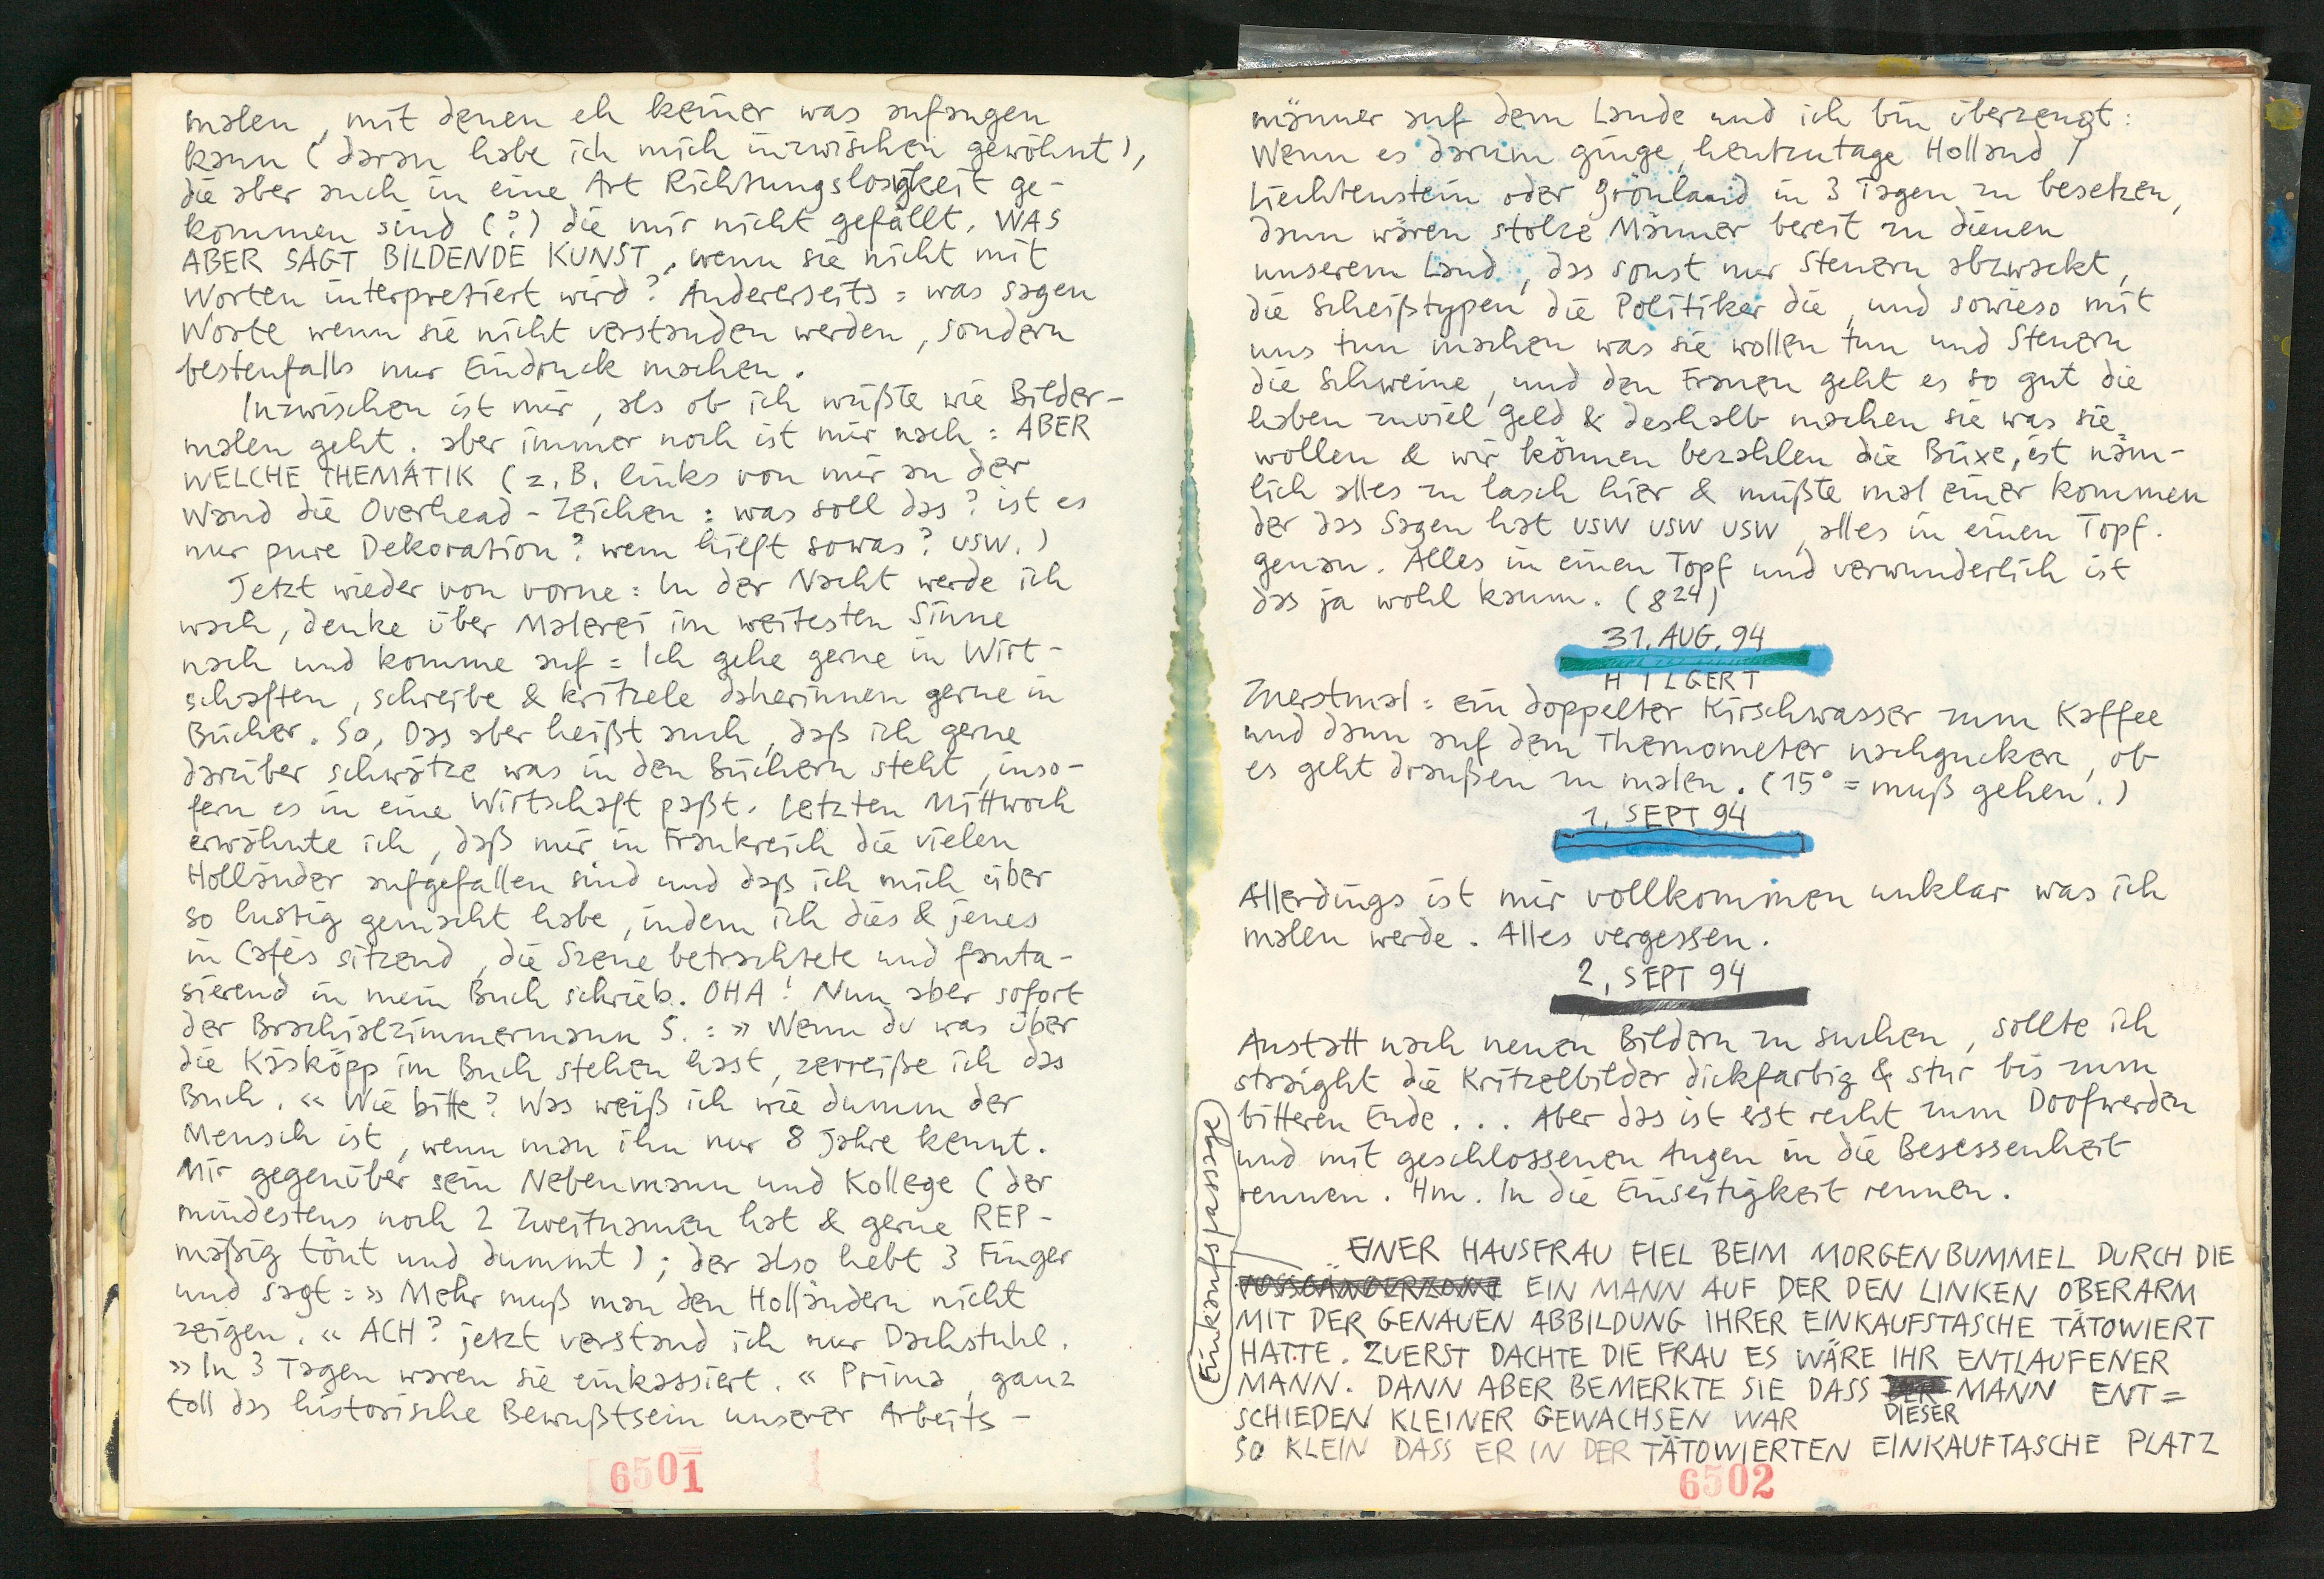 malen, mit denen eh keiner was anfangen
kann (daran habe ich mich inzwischen gewöhnt),
die aber auch in eine Art Richtungslosigkeit ge-
kommen sind (?) die mir nicht gefällt. WAS
ABER SAGT BILDENDE KUNST, wenn sie nicht mit
Worten interpretiert wird? Andererseits: was sagen
Worte wenn sie nicht verstanden werden, sondern
bestenfalls nur Eindruck machen.
Inzwischen ist mir, als ob ich wüßte wie Bilder-
malen geht, aber immer noch ist mir nach: ABER
WELCHE THEMATIK (z.B. links von mir an der
Wand die Overhead-Zeichen: was soll das? ist es
nur pure Dekoration? wem hilft sowas? usw.)
Jetzt wieder von vorne: In der Nacht werde ich
wach, denke über Malerei im weitesten Sinne
nach und komme auf: Ich gehe gerne in Wirt-
schaften, schreibe & kritzele daherinnen gerne in
Bücher. So, Das aber heißt auch, daß ich gerne
darüber schwätze was in den Büchern steht, inso-
fern es in eine Wirtschaft paßt. Letzten Mittwoch
erwähnte ich, daß mir in Frankreich die vielen
Holländer aufgefallen sind und daß ich mich über
so lustig gemacht habe, indem ich dies & jenes
in Cafés sitzend, die Szene betrachtete und fanta-
sierend in mein Buch schrieb. OHA! Nun aber sofort
der Brachialzimmermann S.: »Wenn du was über
die Käsköpp im Buch stehen hast, zerreiße ich das
Buch.« Wie bitte? Was weiß ich wie dumm der
Mensch ist, wenn man ihn nur 8 Jahre kennt.
Mir gegenüber sein Nebenmann und Kollege (der
mindestens noch 2 Zweitnamen hat & gerne REP-
mäßig tönt und dummt); der also hebt 3 Finger
und sagt: »Mehr muß man den Holländern nicht
zeigen.« ACH? jetzt verstand ich nur Dachstuhl.
»In 3 Tagen waren sie einkassiert.« Prima, ganz
toll das historische Bewußtsein unserer Arbeits-
6501
männer auf dem Lande und ich bin überzeugt:
Wenn es darum ginge, heutzutage Holland /
Liechtenstein oder Grönland in 3 Tagen zu besetzen,
dann wären stolze Männer bereit zu dienen
unserem Land, das sonst nur Steuern abzwackt,
die Scheißtypen die Politiker die, und sowieso mit
uns tun machen was sie wollen tun und Steuern
die Schweine, und den Frauen geht es so gut die
haben zuviel Geld & deshalb machen sie was sie
wollen & wir können bezahlen die Büxe, ist näm-
lich alles zu lasch hier & müßte mal einer kommen
der das Sagen hat usw usw usw, alles in einen Topf.
genau. Alles in einen Topf und verwunderlich ist
das ja wohl kaum. (8 24)
31. AUG. 94
HILGERT
Zuerstmal: ein doppelter Kirschwasser zum Kaffee
und dann auf dem Thermometer nachgucken, ob
es geht draußen zu malen. (15° = muß gehen.)
1. SEPT 94
Allerdings ist mir vollkommen unklar was ich
malen werde. Alles vergessen.
2. SEPT 94
Anstatt nach neuen Bildern zu suchen, sollte ich
straight die Kritzelbilder dickfarbig & stur bis zum
bitteren Ende... Aber das ist erst recht zum Doofwerden
und mit geschlossenen Augen in die Besessenheit
rennen. Hm. In die Einseitigkeit rennen.
EINER HAUSFRAU FIEL BEIM MORGENBUMMEL DURCH DIE
Einkaufspassage
EIN MANN AUF DER DEN LINKEN OBERARM
MIT DER GENAUEN ABBILDUNG IHRER EINKAUFSTASCHE TÄTOWIERT
HATTE. ZUERST DACHTE DIE FRAU ES WÄRE IHR ENTLAUFENER
MANN. DANN ABER BEMERKTE SIE DASS DER MANN ENT=
DIESER
SCHIEDEN KLEINER GEWACHSEN WAR
SO KLEIN DASS ER IN DER TÄTOWIERTEN EINKAUFTASCHE PLATZ
6502